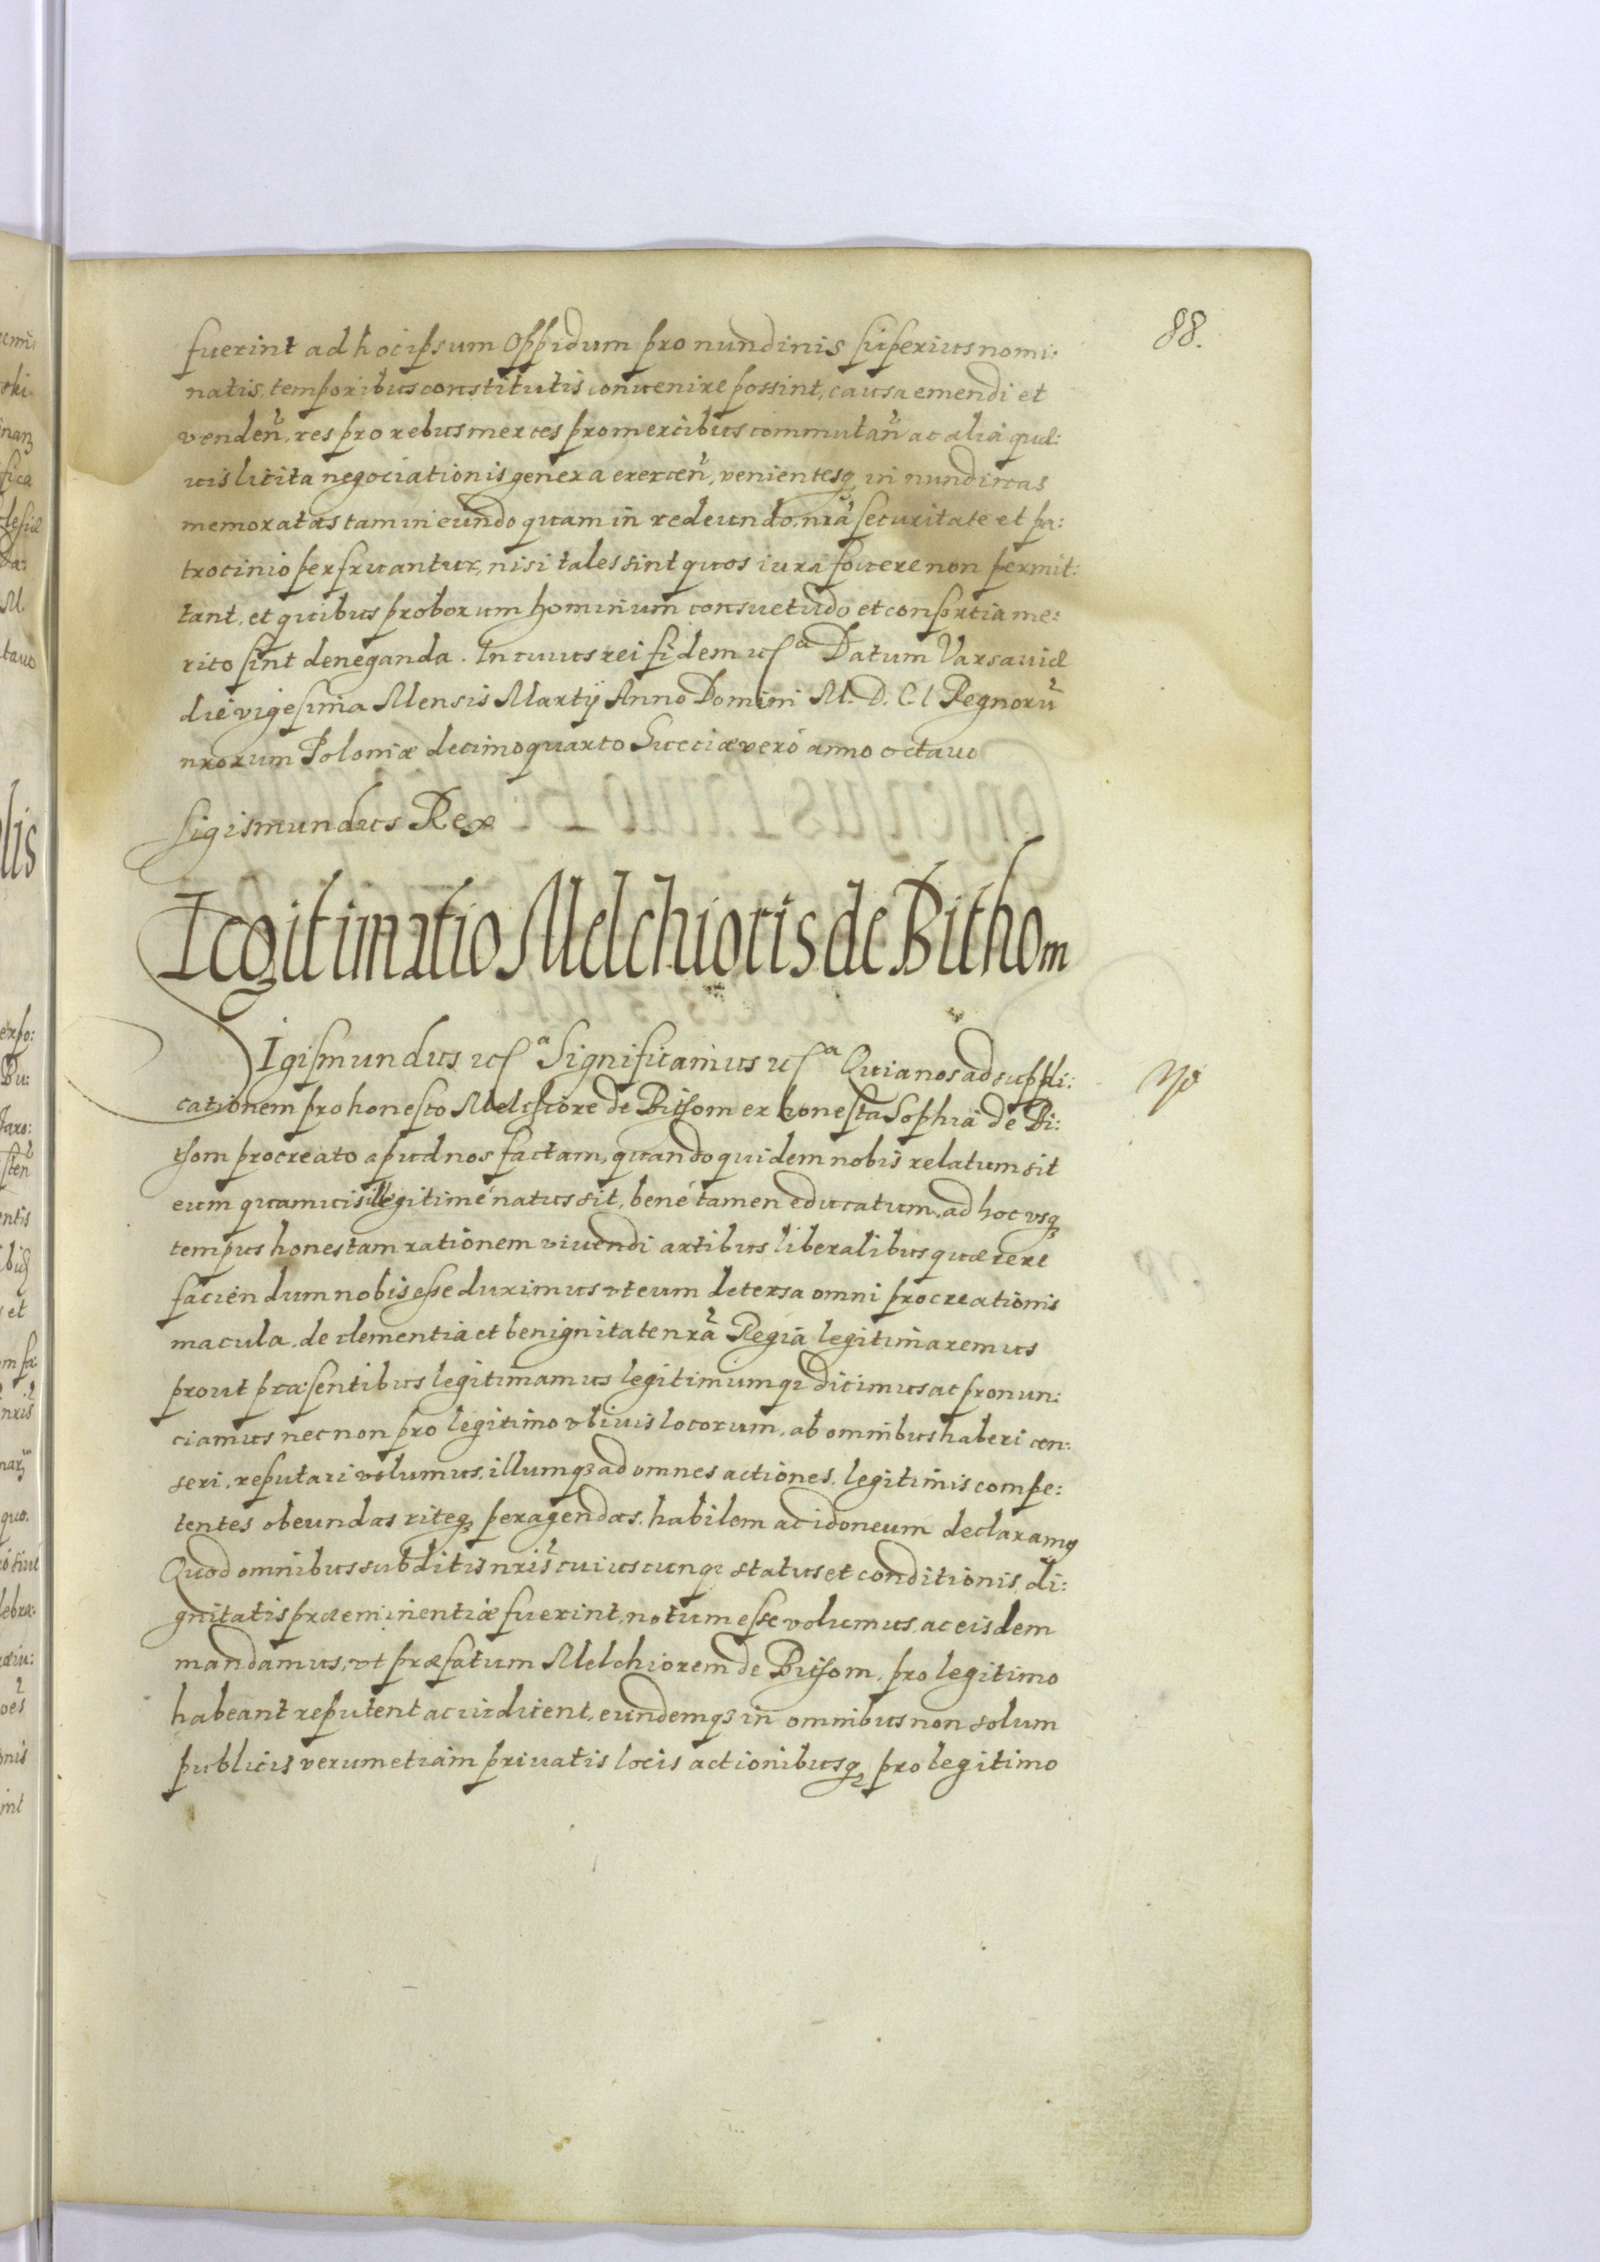 88.
fuerint ad hoc ipsum Oppidum pro nundinis superius nomi:
natis, temporibus constitutis conuenire possint, causa emendi et
venden̄, res pro rebus merces pro mercibus commutan̄ ac alia quæ:
uis licita negociationis genera exercen̄, venientesq̨ in nundinas
memoratas tam in eundo quam in redeundo, nr̄a securitate et pa:
trocinio perfruantur, nisi tales sint quos iura fouere non permit:
tant, et quibus proborum hominum consuetudo et consortia me:
rito sint deneganda. In cuius rei fidem
Datum Varsauiæ
die vigesima Mensis Martij Anno Domini M. D. C. I Regnorū
nrorum Poloniæ decimoquarto Sueciæ verò anno octauo
Sigismundus Rex
Legitimatio Melchioris de Bithom
Sigismundus
Significamus
Quia nos ad suppli:
cationem pro honesto Melchiore de Bithom ex honesta Sophia de Bi:
thom procreato apud nos factam, quandoquidem nobis relatum sit
eum quamuis illegitimé natus sit, bené tamen educatum, ad hoc vsq̨
tempus honestam rationem viuendi artibus liberalibus quærere
faciendum nobis esse duximus vt eum detersa omni procreationis
macula, de clementia et benignitate nr̄a Regia legitimaremus
prout præsentibus legitimamus legitimumq; dicimus ac pronun:
ciamus nec non pro legitimo vbiuis locorum, ab omnibus haberi cen:
seri, reputari volumus, illumq; ad omnes actiones, legitimis compe:
tentes obeundas riteq̨ peragendas, habilem ac idoneum declaramq̨
Quod omnibus subditis nr̄is cuiuscunq; status et conditionis di:
gnitatis præeminentiæ fuerint, notum esse volumus, ac eisdem
mandamus, vt præfatum Melchiorem de Bithom, pro legitimo
habeant reputent ac iudicent, eundemq; in omnibus non solum
publicis verumetiam priuatis locis actionibusq̨ pro legitimo